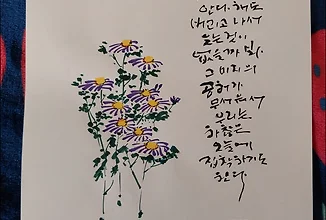 안다. 해도
버리고 나서
오는 것이
없을까 봐
그 미리의
공허가
무서워서
우리는
하찮은
오늘에
집착하기도
한다.